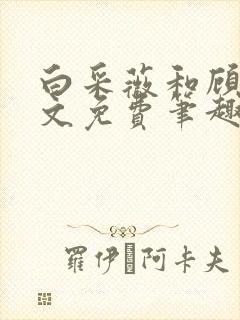 白采薇和顾
文免费笔趣
羅伊 阿卡夫